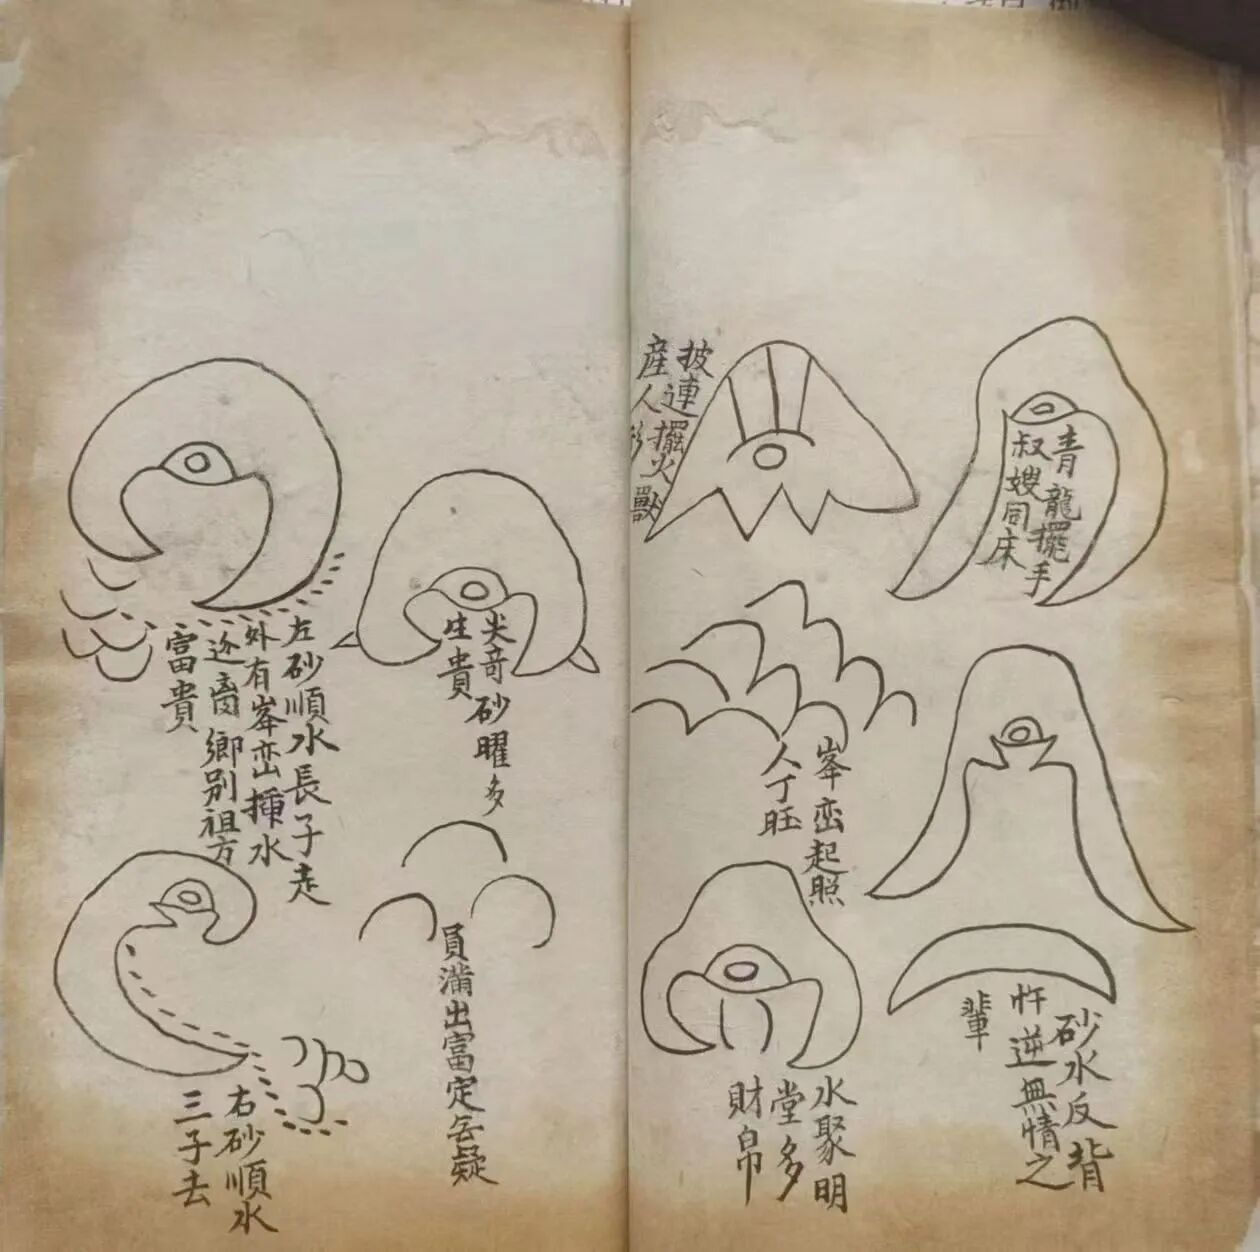 青龍擺手
叔嫂同床
披連擺火獸
産人形
峯巒起照
人丁旺
砂水反背
忤逆無情之
輩
水聚明
堂多
財帛
尖奇砂曜多
生貴
左砂順水長子走
外有峯巒插水
迯离鄉别祖方
富貴
員滿出富定无疑
右砂順水
三子去